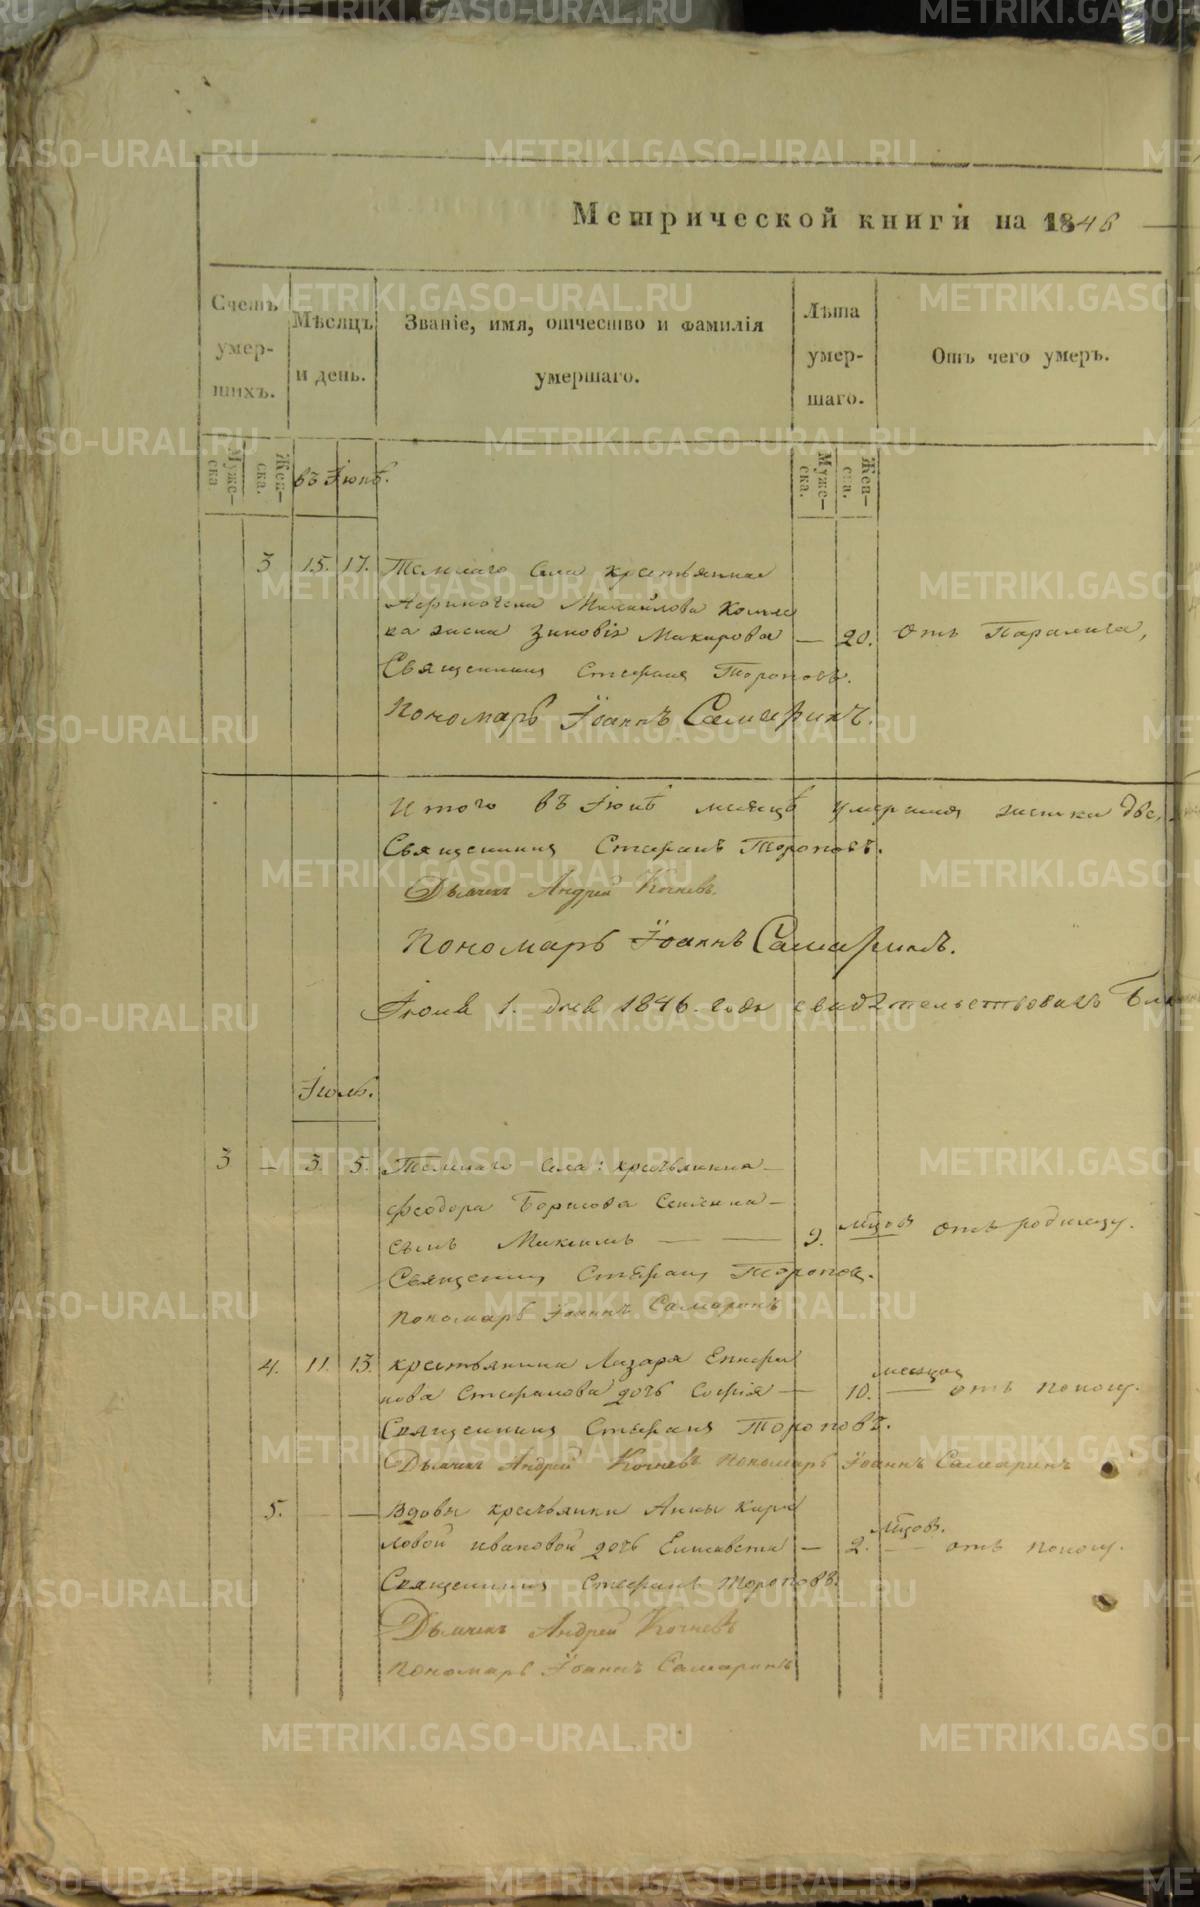 METRIKI.GASO-URAL.RU
Метрической книги на 1846
Счетъ умер-шихъ.
Мѣсяцъ и день.
Званіе, имя, отчество и фамилія умершаго.
Лѣта умер-шаго.
Отъ чего умеръ.
Муже-ска.
Жен-ска.
въ Іюнѣ.
Муже-ска.
Жен-ска.
3 15. 17. села крестьянина
Михайлова
Зиновія Макарова — 20. Отъ Паралича,
Священникъ Стефанъ Тороповъ.
Пономарь Іоаннъ Самаринъ.
Итого въ Іюнѣ месяцѣ женска две,
Священникъ Стефанъ Тороповъ.
Дьячекъ Андрей Кочневъ.
Пономарь Іоаннъ Самаринъ.
Іюля 1. дня 1846. года свидѣтельствовалъ
Іюль.
3 — 3. 5. села: крестьянина
Феодора Борисова
сынъ Максимъ — — 9. мцовъ отъ родимцу.
Священникъ Стефанъ Тороповъ.
Пономарь Іоаннъ Самаринъ
4. 11. 13. крестьянина Лазаря
Стефанова дочь Софія — 10. месяцов — отъ поносу.
Священникъ Стефанъ Тороповъ.
Дьячекъ Андрей Кочневъ Пономарь Іоаннъ Самаринъ
5. — Вдовы крестьянки Анны Кири
ловой Ивановой дочь Елисавета — 2. мцовъ. — отъ поносу.
Священникъ Стефанъ Тороповъ.
Дьячекъ Андрей Кочневъ
Пономарь Іоаннъ Самаринъ